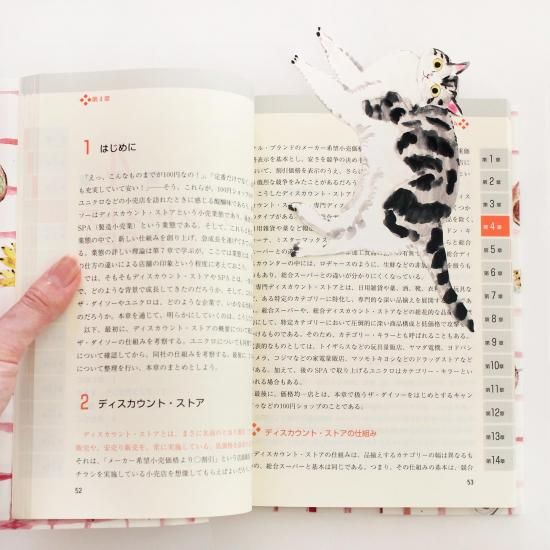 第4章
1 はじめに
「えっ、こんなものまでが100円なの！」「定番だけでなく、
も充実していて安い！」――そう、これらが、100円ショップの
ユニクロなどの小売店を訪れたときに感じる醍醐味であ
ソーはディスカウント・ストアという小売業態であり、
SPA（製造小売業）という業態である。そして、これら
業態の中で、新しい仕組みを創り上げ、急成長を遂げて
る。業態の詳しい理論は第7章で学ぶが、ここでは業態
仕方の違いによる店舗の印象という程度に考えて
では、そもそもディスカウント・ストアやSPAとは、
で、どのような背景で成長してきたのだろうか。そして、
ザ・ダイソーやユニクロは、どのような企業で、いかな
のだろうか。本章を通じて、明らかにしていくのは、こ
以下、最初に、ディスカウント・ストアの概要につ
ザ・ダイソーの仕組みを考察する。ユニクロについても同
について確認してから、同社の仕組みを考察する。最後に
について整理を行い、本章のまとめとしよう。
2 ディスカウント・ストア
ディスカウント・ストアとは、まさに
販売や、安売り販売を、常に実施している、低価格を
それは、「メーカー希望小売価格より〇割引」という
チラシを実施している小売店を想像してもらえばよいだ
52
ナル・ブランドのメーカー希望小売価格
表示を基本とし、安さを競争の決め
において、割引価格を表示のうえ、さらに
こうしたディスカウント・ストア
タイプがある。
日用雑貨や薬など
ー、ミスターマックス
カウントストアの中には、ロヂャースのように、生鮮などの
り、総合スーパーとの違いが分かりにくくなって
専門ディスカウント・ストアとは、日用雑貨や薬、酒、靴、衣
、ある特定のカテゴリーに特化し、専門的な深い品揃えを展開する
が、総合スーパーや、総合ディスカウント・ストアなどの
して、特定カテゴリーにおいて圧倒的に深い商品構成と低価格で攻撃
ある。そのため、カテゴリー・キラーとも呼ばれることもある。
表的なものとしては、トイザらスなどの玩具量販店、ヤマダ電機、ヨドバシ
メラ、コジマなどの家電量販店、マツモトキヨシなどのドラッグストアなど
る。加えて、後のSPAで取り上げるユニクロはカテゴリー・キラーといった
される場合もある。
最後に、価格均一店とは、本章で扱うザ・ダイソーをはじめとするキャン
ゥなどの100円ショップのことである。
ディスカウント・ストアの仕組み
ディスカウント・ストアの仕組みは、品揃えするカテゴリーの幅は異なるも
、総合スーパーと基本は同じである。つまり、その仕組みの基本は、競合
53
第1章
第2章
第3章
第4章
第5章
第6章
第7章
第8章
第9章
第10章
第11章
第12章
第13章
第14章